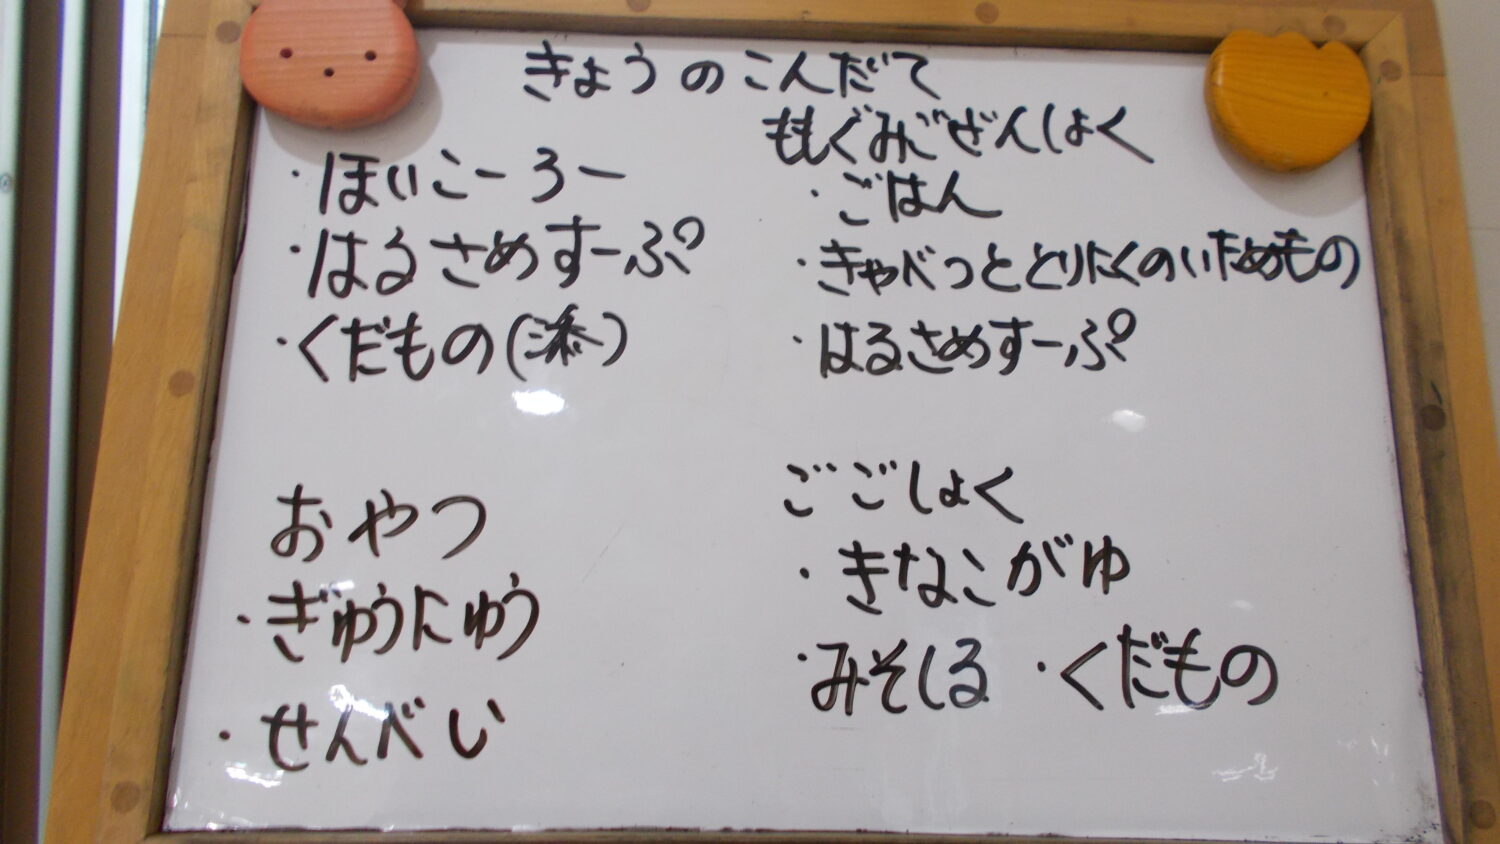 きょうのこんだて
・ほいこーろー
・はるさめすーぷ
・くだもの(添)
おやつ
・ぎゅうにゅう
・せんべい
ももぐみごぜんしょく
・ごはん
・きゃべつととりにくのいためもの
・はるさめすーぷ
ごごしょく
・きなこがゆ
・みそしる ・くだもの